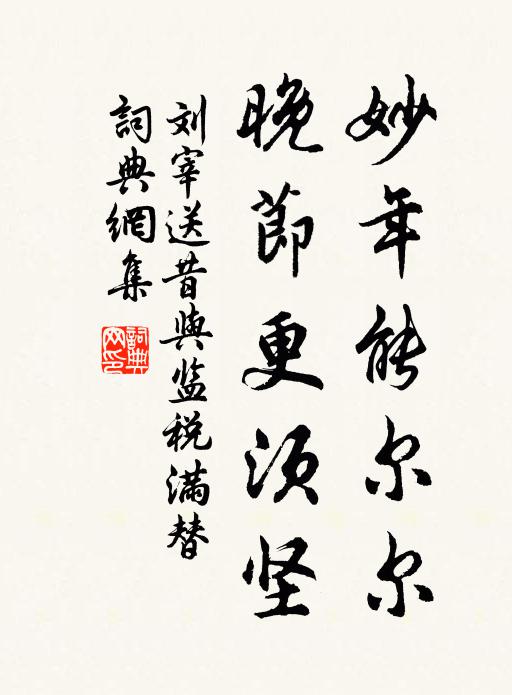 妙年能尔尔
晚節更须坚
刘宰送昔與监税满替
詞典網集
詞典網印